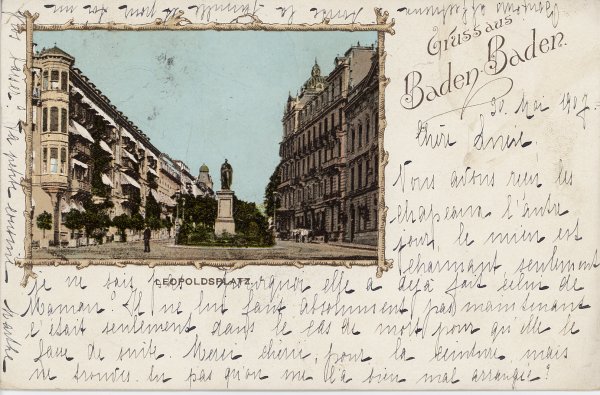 Gruss aus
Baden-Baden.
30 Mai 1907
Chère Louise.
Nous avons reçu les
chapeaux l'autre
jour, le mien est
charmant, seulement
LEOPOLDSPLATZ.
je ne sais pourquoi elle a déjà fait celui de
Maman? Il ne lui faut absolument pas maintenant
c'était seulement dans le cas de mort pour qu'elle le
fasse de suite. Merci chérie, pour la ceinture, mais
ne trouves-tu pas qu'on me l'a bien mal arrangée?
Ta petite cousine Marthe